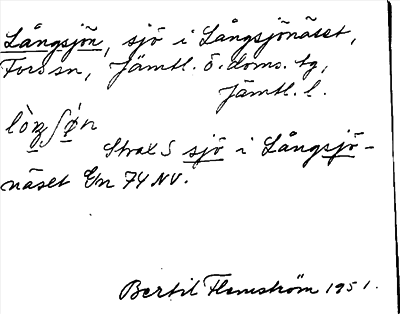 Långsjön, sjö i Långsjönäset,
Fors sn, Jämtl. ö. doms. tg,
Jämtl. l.
lò̀ŋʃø̀n
Strax S sjö i Långsjö-
näset Gn 74 NV.
Bertil Flemström 1951.